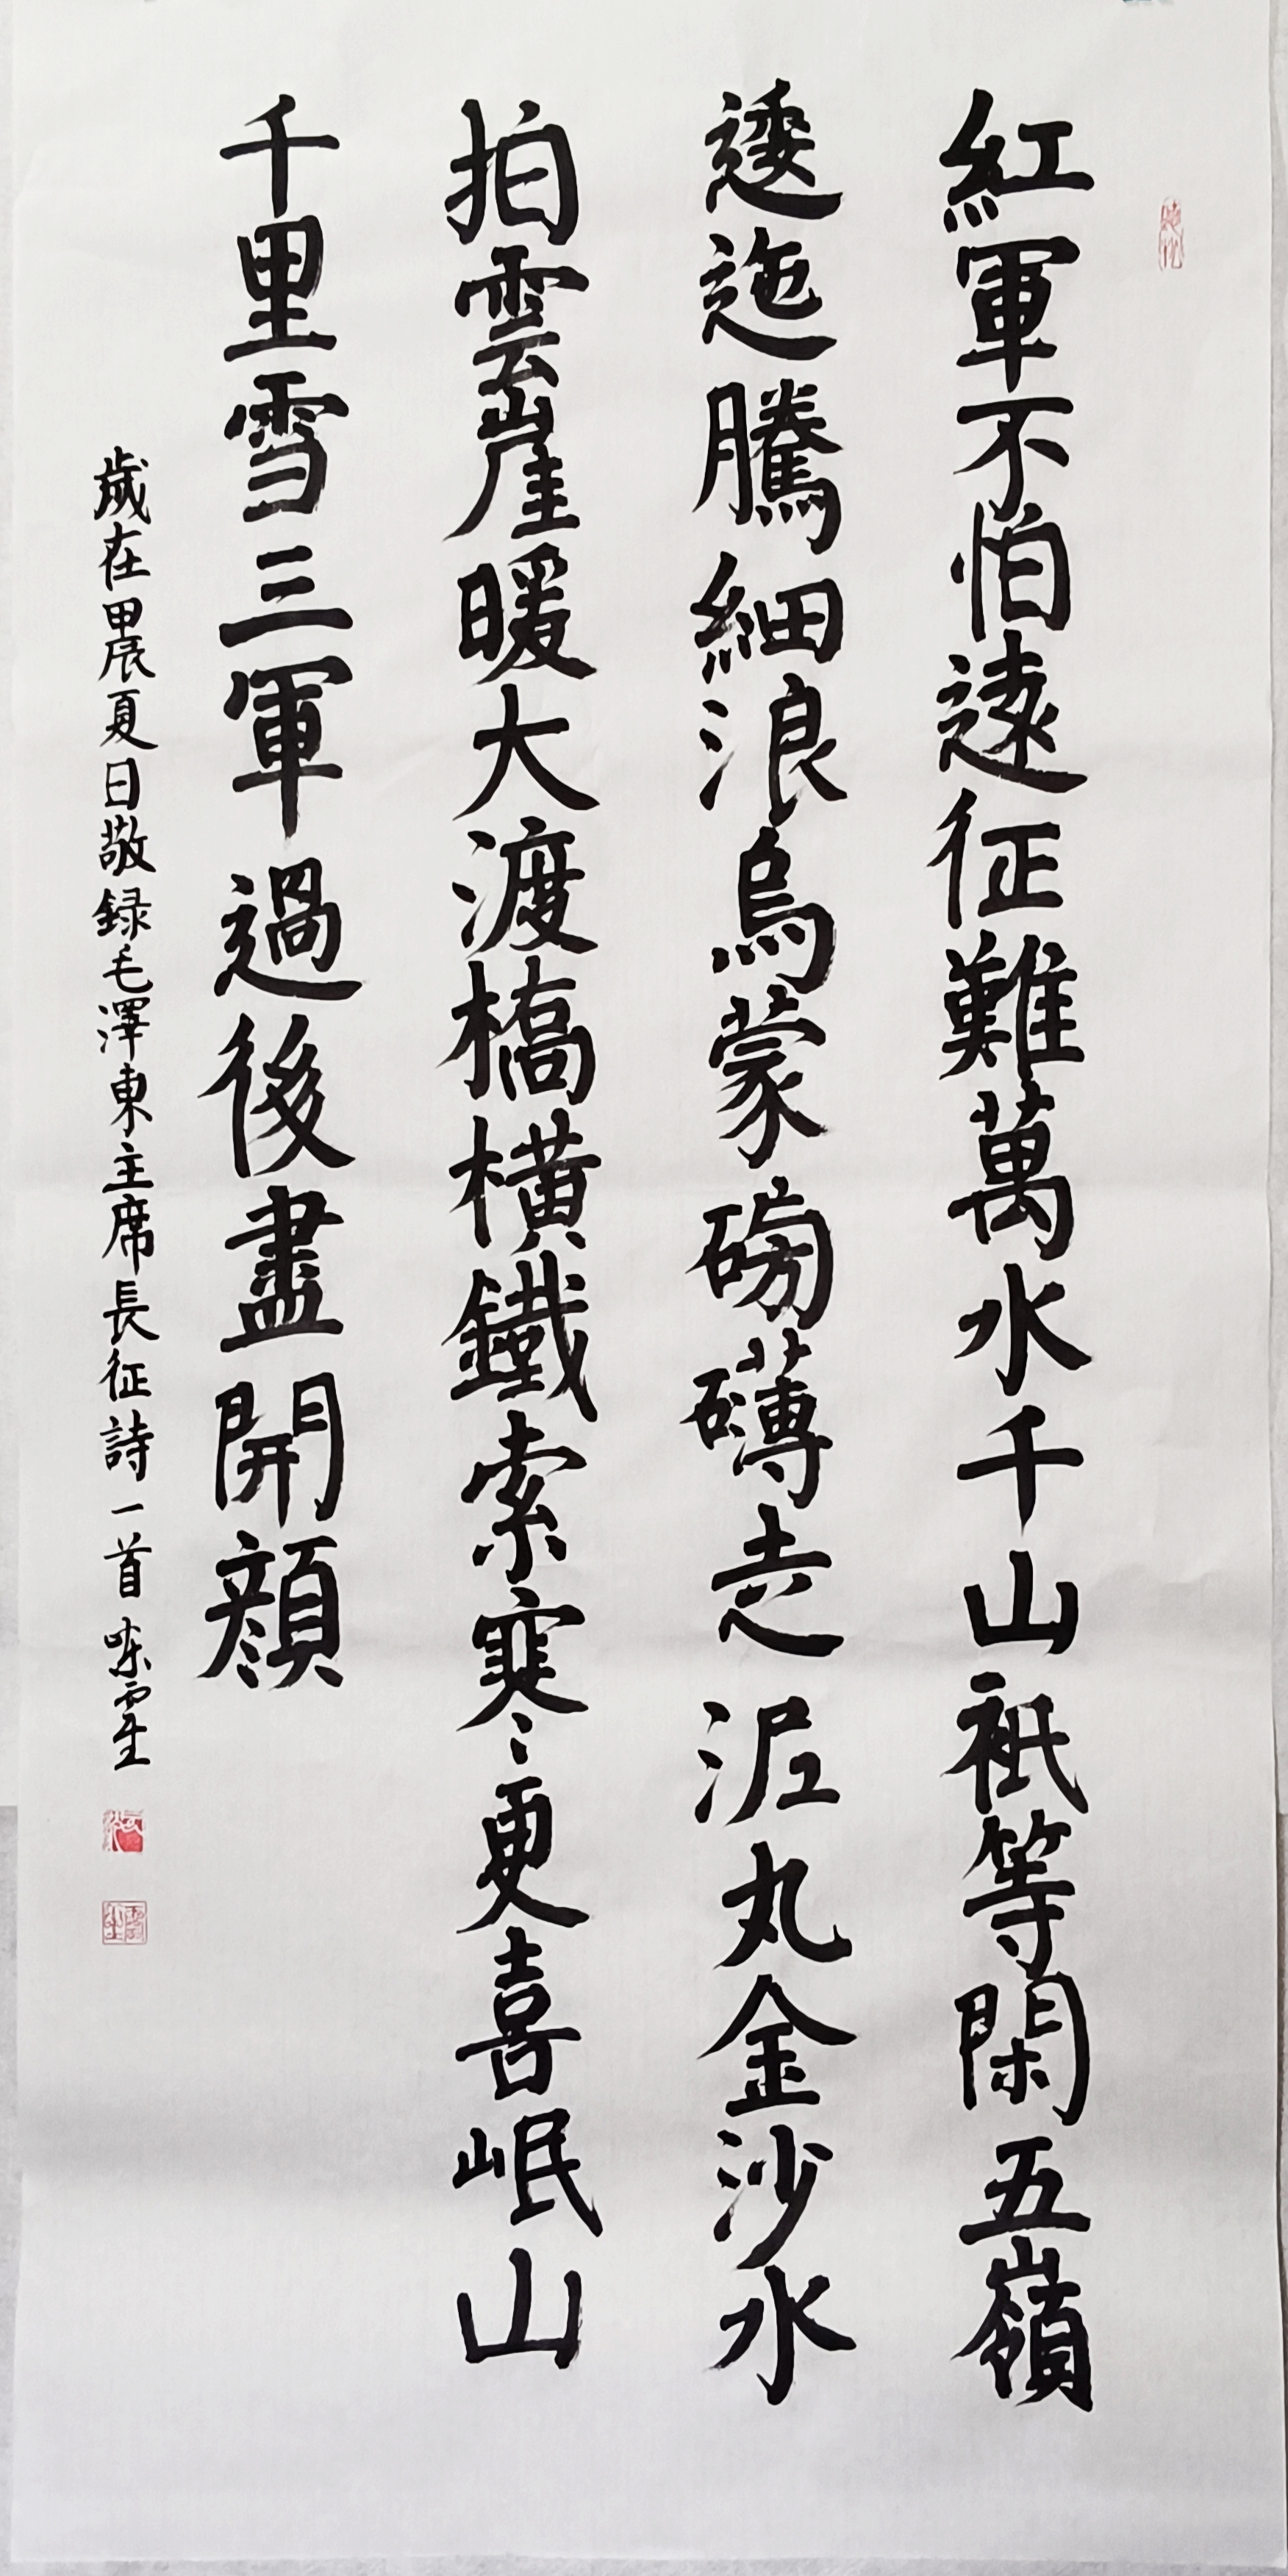 紅軍不怕遠征難萬水千山祗等閑五嶺
逶迤騰細浪烏蒙磅礴走泥丸金沙水
拍雲崖暖大渡橋橫鐵索寒更喜岷山
千里雪三軍過後盡開顏
歲在甲辰夏日敬録毛澤東主席長征詩一首